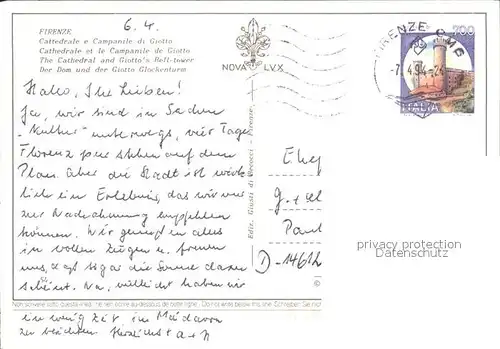 6.4.
FIRENZE
Cattedrale e Campanile di Giotto
Cathedrale et le Campanile de Giotto
The Cathedral and Giotto's Bell-tower
Der Dom und der Giotto Glockenturm
NOVA LVX
700
FIRENZE CMP
-7.4.94-24
ITALIA
Hallo, Ihr Lieben!
Ja, wir sind in Sachen
"Kultur" unterwegs, vier Tage
Florenz pur stehen auf dem
Plan. Aber die Stadt ist wirk-
lich ein Erlebnis, das wir nur
zur Nachahmung empfehlen
können. Wir genießen alles
in vollen Zügen u. freuen
uns, daß sogar die Sonne dazu
scheint. Na, vielleicht haben wir
ein wenig Zeit, im
zu berichten. Herzlichst
Ediz. Giusti di Becocci - Firenze
Ehe
G.+
Paul
D-1461
©
privacy protection
Datenschutz
Non scrivere sotto questa linea. Ne rien écrire au-dessous de cette ligne. Do not write below this line. Schreiben Sie